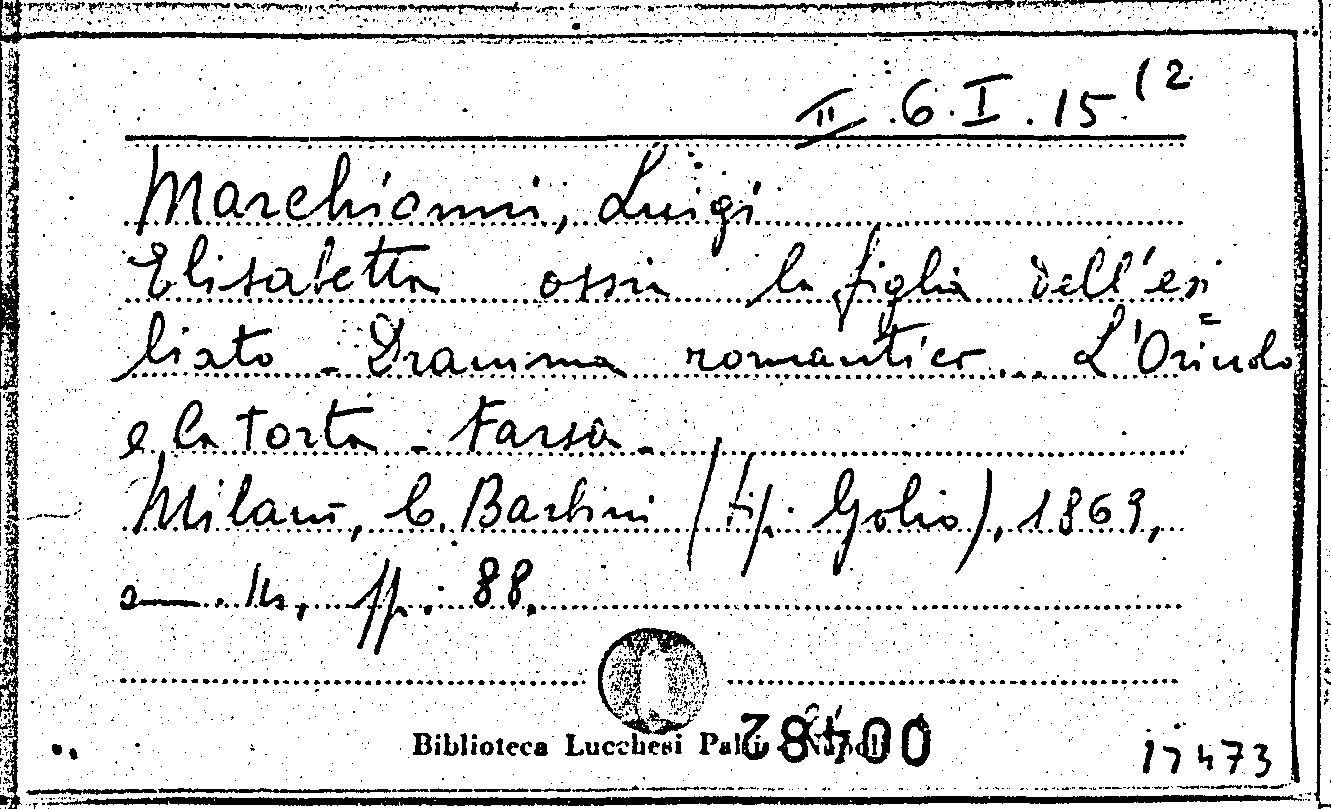 II.6.I.15(2
Marchionni, Luigi
Elisabetta ossia la figlia dell'esi=
liato - Dramma romantico... L'Oriuolo
e la Torta - Farsa -
Milano, C. Barbini (tip. Golio), 1869,
in 16, pp. 88.
Biblioteca Lucchesi Palli - Napoli
00482
17473